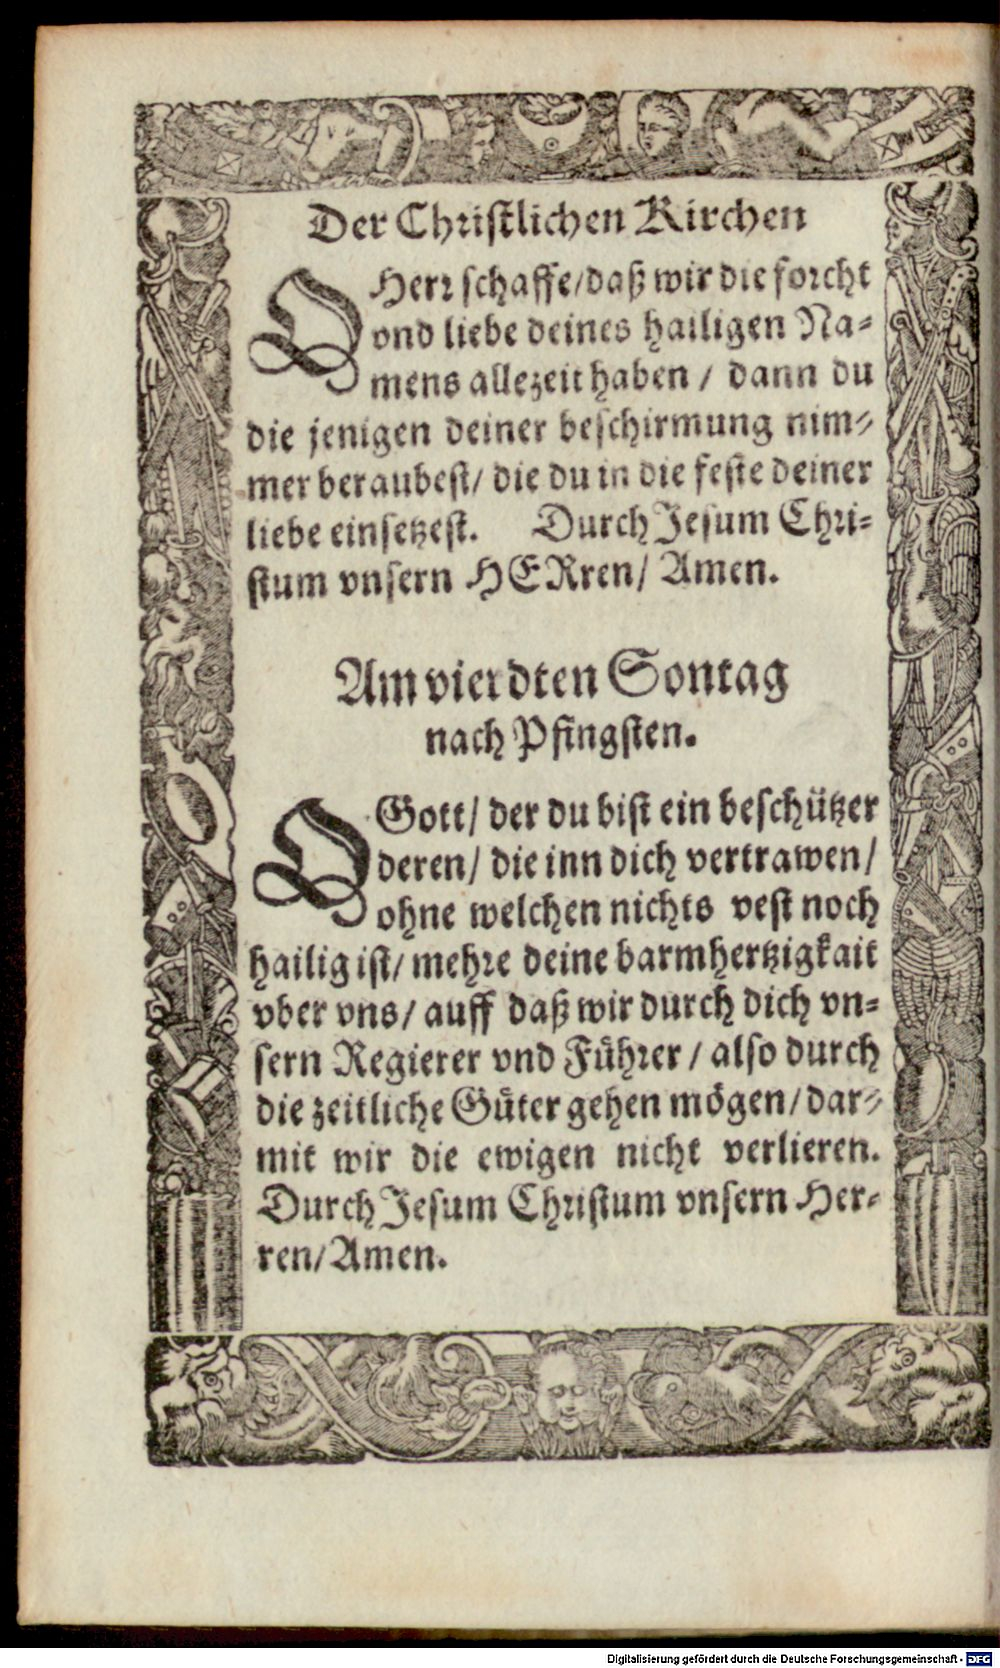 Der Christlichen Kirchen
O Herr schaffe/ daß wir die forcht
vnd liebe deines hailigen Na-
mens allezeit haben / dann du
die jenigen deiner beschirmung nim-
mer beraubest/ die du in die feste deiner
liebe einsetzest. Durch Jesum Chri-
stum vnsern HERren/ Amen.
Am vierdten Sontag
nach Pfingsten.
O Gott/ der du bist ein beschützer
deren/ die inn dich vertrawen/
ohne welchen nichts vest noch
hailig ist/ mehre deine barmhertzigkait
vber vns/ auff daß wir durch dich vn-
sern Regierer vnd Führer / also durch
die zeitliche Güter gehen mögen/ dar-
mit wir die ewigen nicht verlieren.
Durch Jesum Christum vnsern Her-
ren/ Amen.
Digitalisierung gefördert durch die Deutsche Forschungsgemeinschaft - DFG